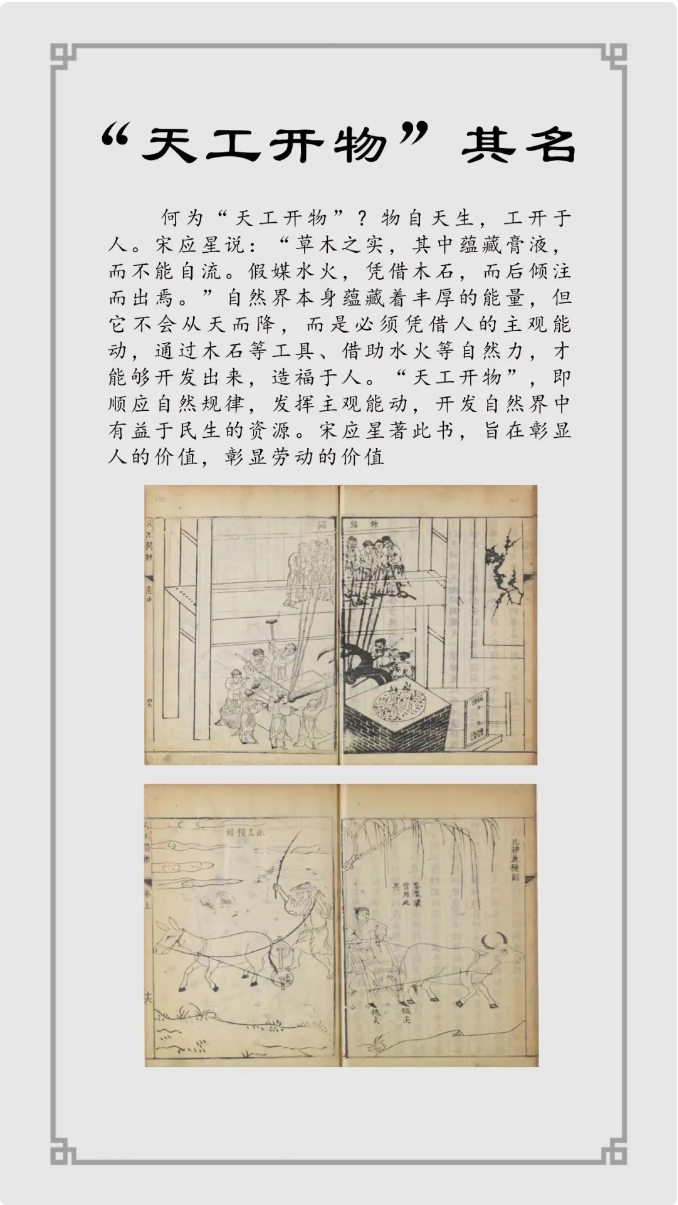 “天工开物”其名
何为“天工开物”？物自天生，工开于
人。宋应星说：“草木之实，其中蕴藏膏液，
而不能自流。假媒水火，凭借木石，而后倾注
而出焉。”自然界本身蕴藏着丰厚的能量，但
它不会从天而降，而是必须凭借人的主观能
动，通过木石等工具、借助水火等自然力，才
能够开发出来，造福于人。“天工开物”，即
顺应自然规律，发挥主观能动，开发自然界中
有益于民生的资源。宋应星著此书，旨在彰显
人的价值，彰显劳动的价值
北耕兼種圖